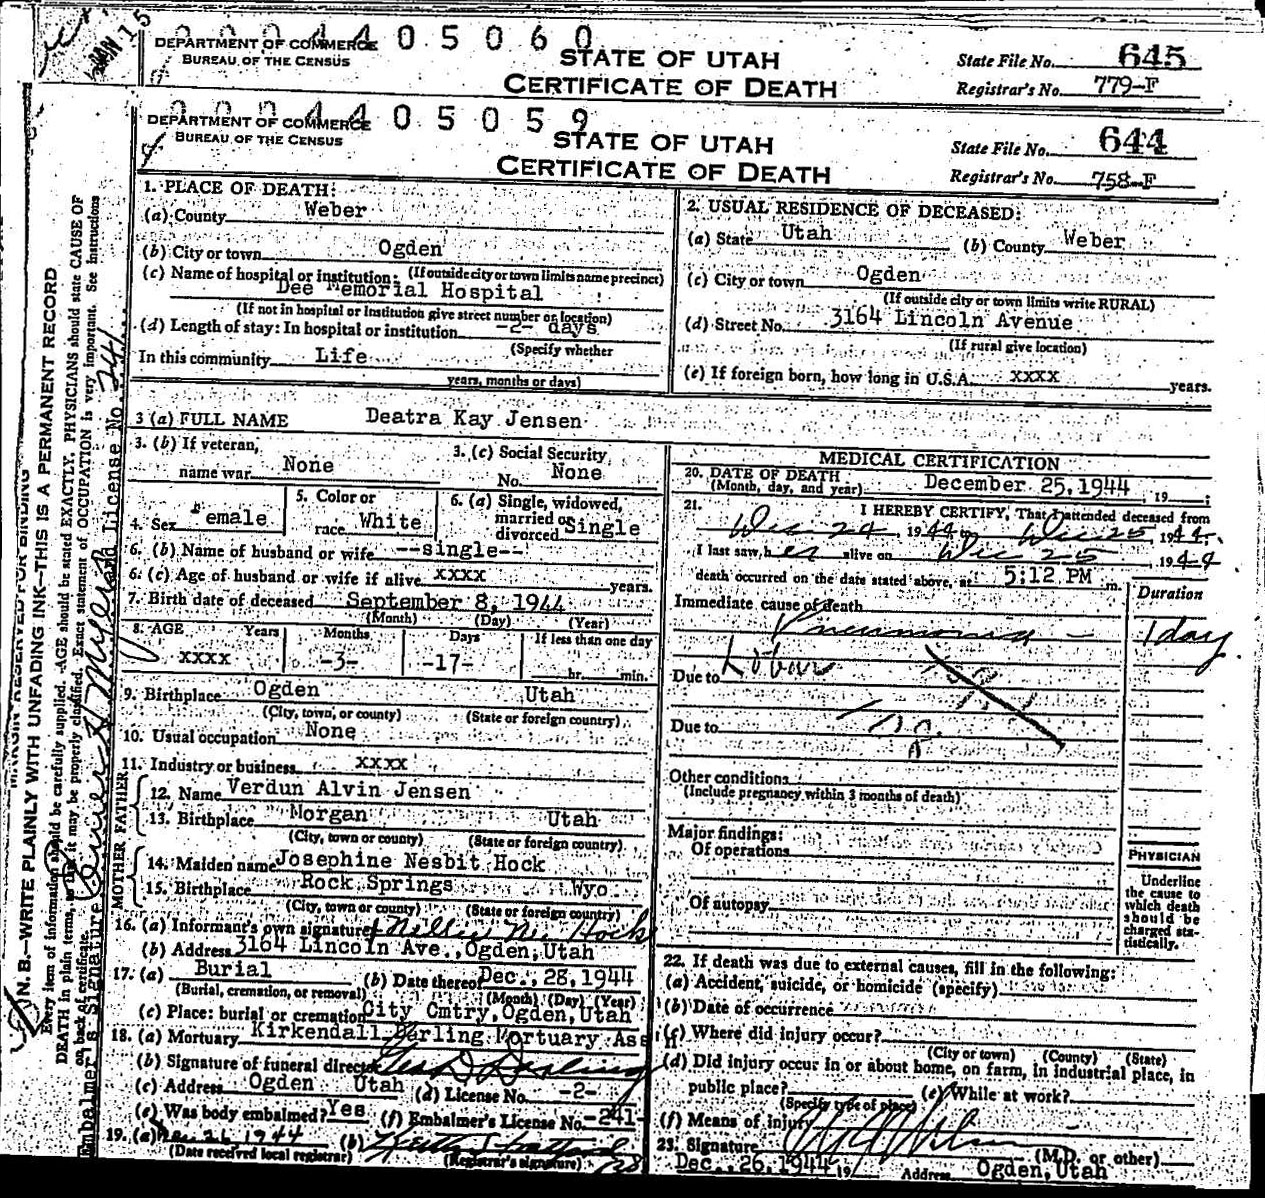 JAN 15
0 0 0 4 4 0 5 0 6 0
DEPARTMENT OF COMMERCE
BUREAU OF THE CENSUS
STATE OF UTAH
CERTIFICATE OF DEATH
State File No. 645
Registrar's No. 779-F
0 0 0 4 4 0 5 0 5 9
DEPARTMENT OF COMMERCE
BUREAU OF THE CENSUS
STATE OF UTAH
CERTIFICATE OF DEATH
State File No. 644
Registrar's No. 758-F
1. PLACE OF DEATH:
(a) County Weber
(b) City or town Ogden
(If outside city or town limits name precinct)
(c) Name of hospital or institution:
Dee Memorial Hospital
(If not in hospital or institution give street number or location)
(d) Length of stay: In hospital or institution -2- days
(Specify whether
In this community Life
years, months or days)
2. USUAL RESIDENCE OF DECEASED:
(a) State Utah (b) County Weber
(c) City or town Ogden
(If outside city or town limits write RURAL)
(d) Street No. 3164 Lincoln Avenue
(If rural give location)
(e) If foreign born, how long in U.S.A. xxxx years.
3 (a) FULL NAME Deatra Kay Jensen
3. (b) If veteran,
name war None
3. (c) Social Security
No. None
4. Sex Female
5. Color or
race White
6. (a) Single, widowed,
married or
divorced Single
6. (b) Name of husband or wife --single--
6. (c) Age of husband or wife if alive xxxx years.
7. Birth date of deceased September 8, 1944
(Month) (Day) (Year)
8. AGE Years Months Days If less than one day
xxxx -3- -17- hr. min.
9. Birthplace Ogden Utah
(City, town, or county) (State or foreign country)
10. Usual occupation None
11. Industry or business xxxx
FATHER
12. Name Verdun Alvin Jensen
13. Birthplace Morgan Utah
(City, town or county) (State or foreign country)
MOTHER
14. Maiden name Josephine Nesbit Hock
15. Birthplace Rock Springs Wyo
(City, town or county) (State or foreign country)
16. (a) Informant's own signature Hock
(b) Address 3164 Lincoln Ave., Ogden, Utah
17. (a) Burial (b) Date thereof Dec., 28, 1944
(Burial, cremation, or removal) (Month) (Day) (Year)
(c) Place: burial or cremation City Cmtry, Ogden, Utah
18. (a) Mortuary Kirkendall Darling Mortuary Ass'n
(b) Signature of funeral director Geo D Darling
(c) Address Ogden Utah (d) License No. -2-
(e) Was body embalmed? Yes (f) Embalmer's License No. -241-
19. (a) Dec. 26, 1944 (b)
(Date received local registrar) (Registrar's signature)
MEDICAL CERTIFICATION
20. DATE OF DEATH
(Month, day, and year) December 25, 1944, 19
21. I HEREBY CERTIFY, That I attended deceased from
Dec 24 1944 to Dec 25 1944.
I last saw her alive on Dec 25, 1944
death occurred on the date stated above, at 5:12 PM m.
Duration
Immediate cause of death
Pneumonia - 1 day
Due to Lobar
Due to
Other conditions
(Include pregnancy within 3 months of death)
Major findings:
Of operations
Of autopsy
PHYSICIAN
Underline
the cause to
which death
should be
charged sta-
tistically.
22. If death was due to external causes, fill in the following:
(a) Accident, suicide, or homicide (specify)
(b) Date of occurrence
(c) Where did injury occur?
(City or town) (County) (State)
(d) Did injury occur in or about home, on farm, in industrial place, in
public place? (e) While at work?
(Specify type of place)
(f) Means of injury
23. Signature (M.D. or other)
Dec., 26, 1944 19 Address Ogden, Utah
MARGIN RESERVED FOR BINDING
N. B.—WRITE PLAINLY WITH UNFADING INK—THIS IS A PERMANENT RECORD
Every item of information should be carefully supplied. AGE should be stated EXACTLY. PHYSICIANS should state CAUSE OF
DEATH in plain terms, so that it may be properly classified. Exact statement of OCCUPATION is very important. See instructions
on back of certificate.
Embalmer's Signature and License No. 241